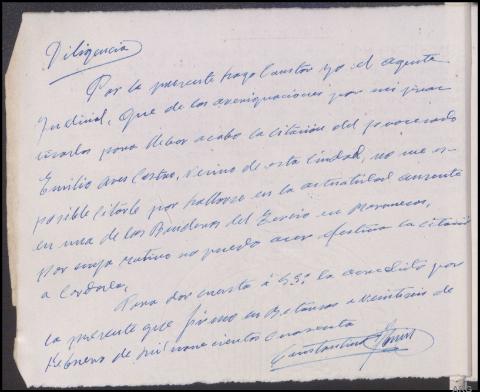 Diligencia
Por la presente hago constar yo el agente
Judicial, que de las averiguaciones por mi prac
ticadas para llebar acabo la citación del procesado
Emilio Ares Castro, vecino de esta Ciudad, no me es
posible citarle por hallarse en la actualidad ausente
en una de las Banderas del Tercio en Marruecos,
por cuyo motivo no puedo acer efectiva la citación
a Cordarla,
Para dar cuenta á SSª la acredito por
la presente que firmo en Betanzos a veintiseis de
Febrero de mil nove cientos cuarenta
Constantino